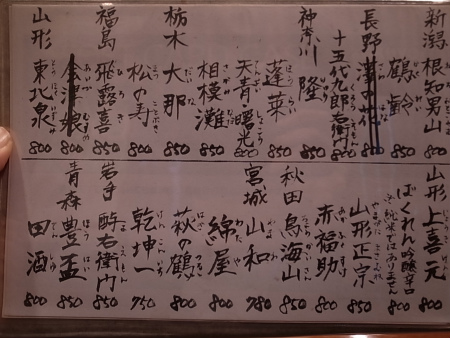 新潟 根知男山 800
鶴齢 850
長野 十五代九郎右衛門 800
神奈川 隆 850
蓬莱 850
天青・曙光 800
相模灘 850
栃木 大那 850
松の寿 800
福島 飛露喜 850
会津娘
山形 東北泉 800
山形 上喜元 800
ばくれん吟醸辛口 800
※純米ではありません
山形正宗 850
赤福助 800
秋田 鳥海山 850
宮城 山和 780
綿屋 800
萩の鶴 800
乾坤一 750
岩手 酔右衛門 850
青森 豊盃 850
田酒 800